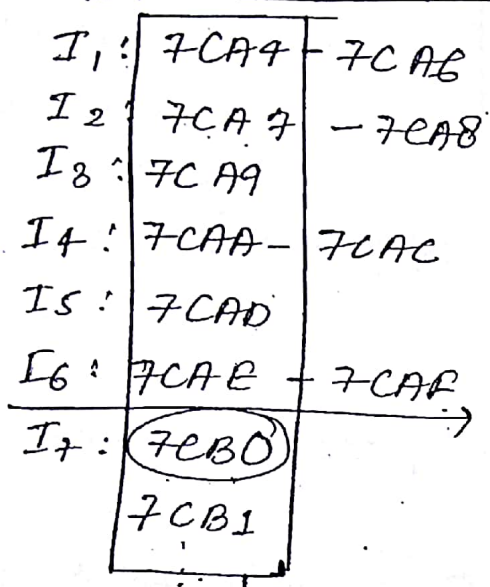 I1: 7CA4 - 7CA6
I2 7CA7 - 7CA8
I3: 7CA9
I4: 7CAA - 7CAC
I5: 7CAD
I6: 7CAE - 7CAF
I7: 7CB0
7CB1